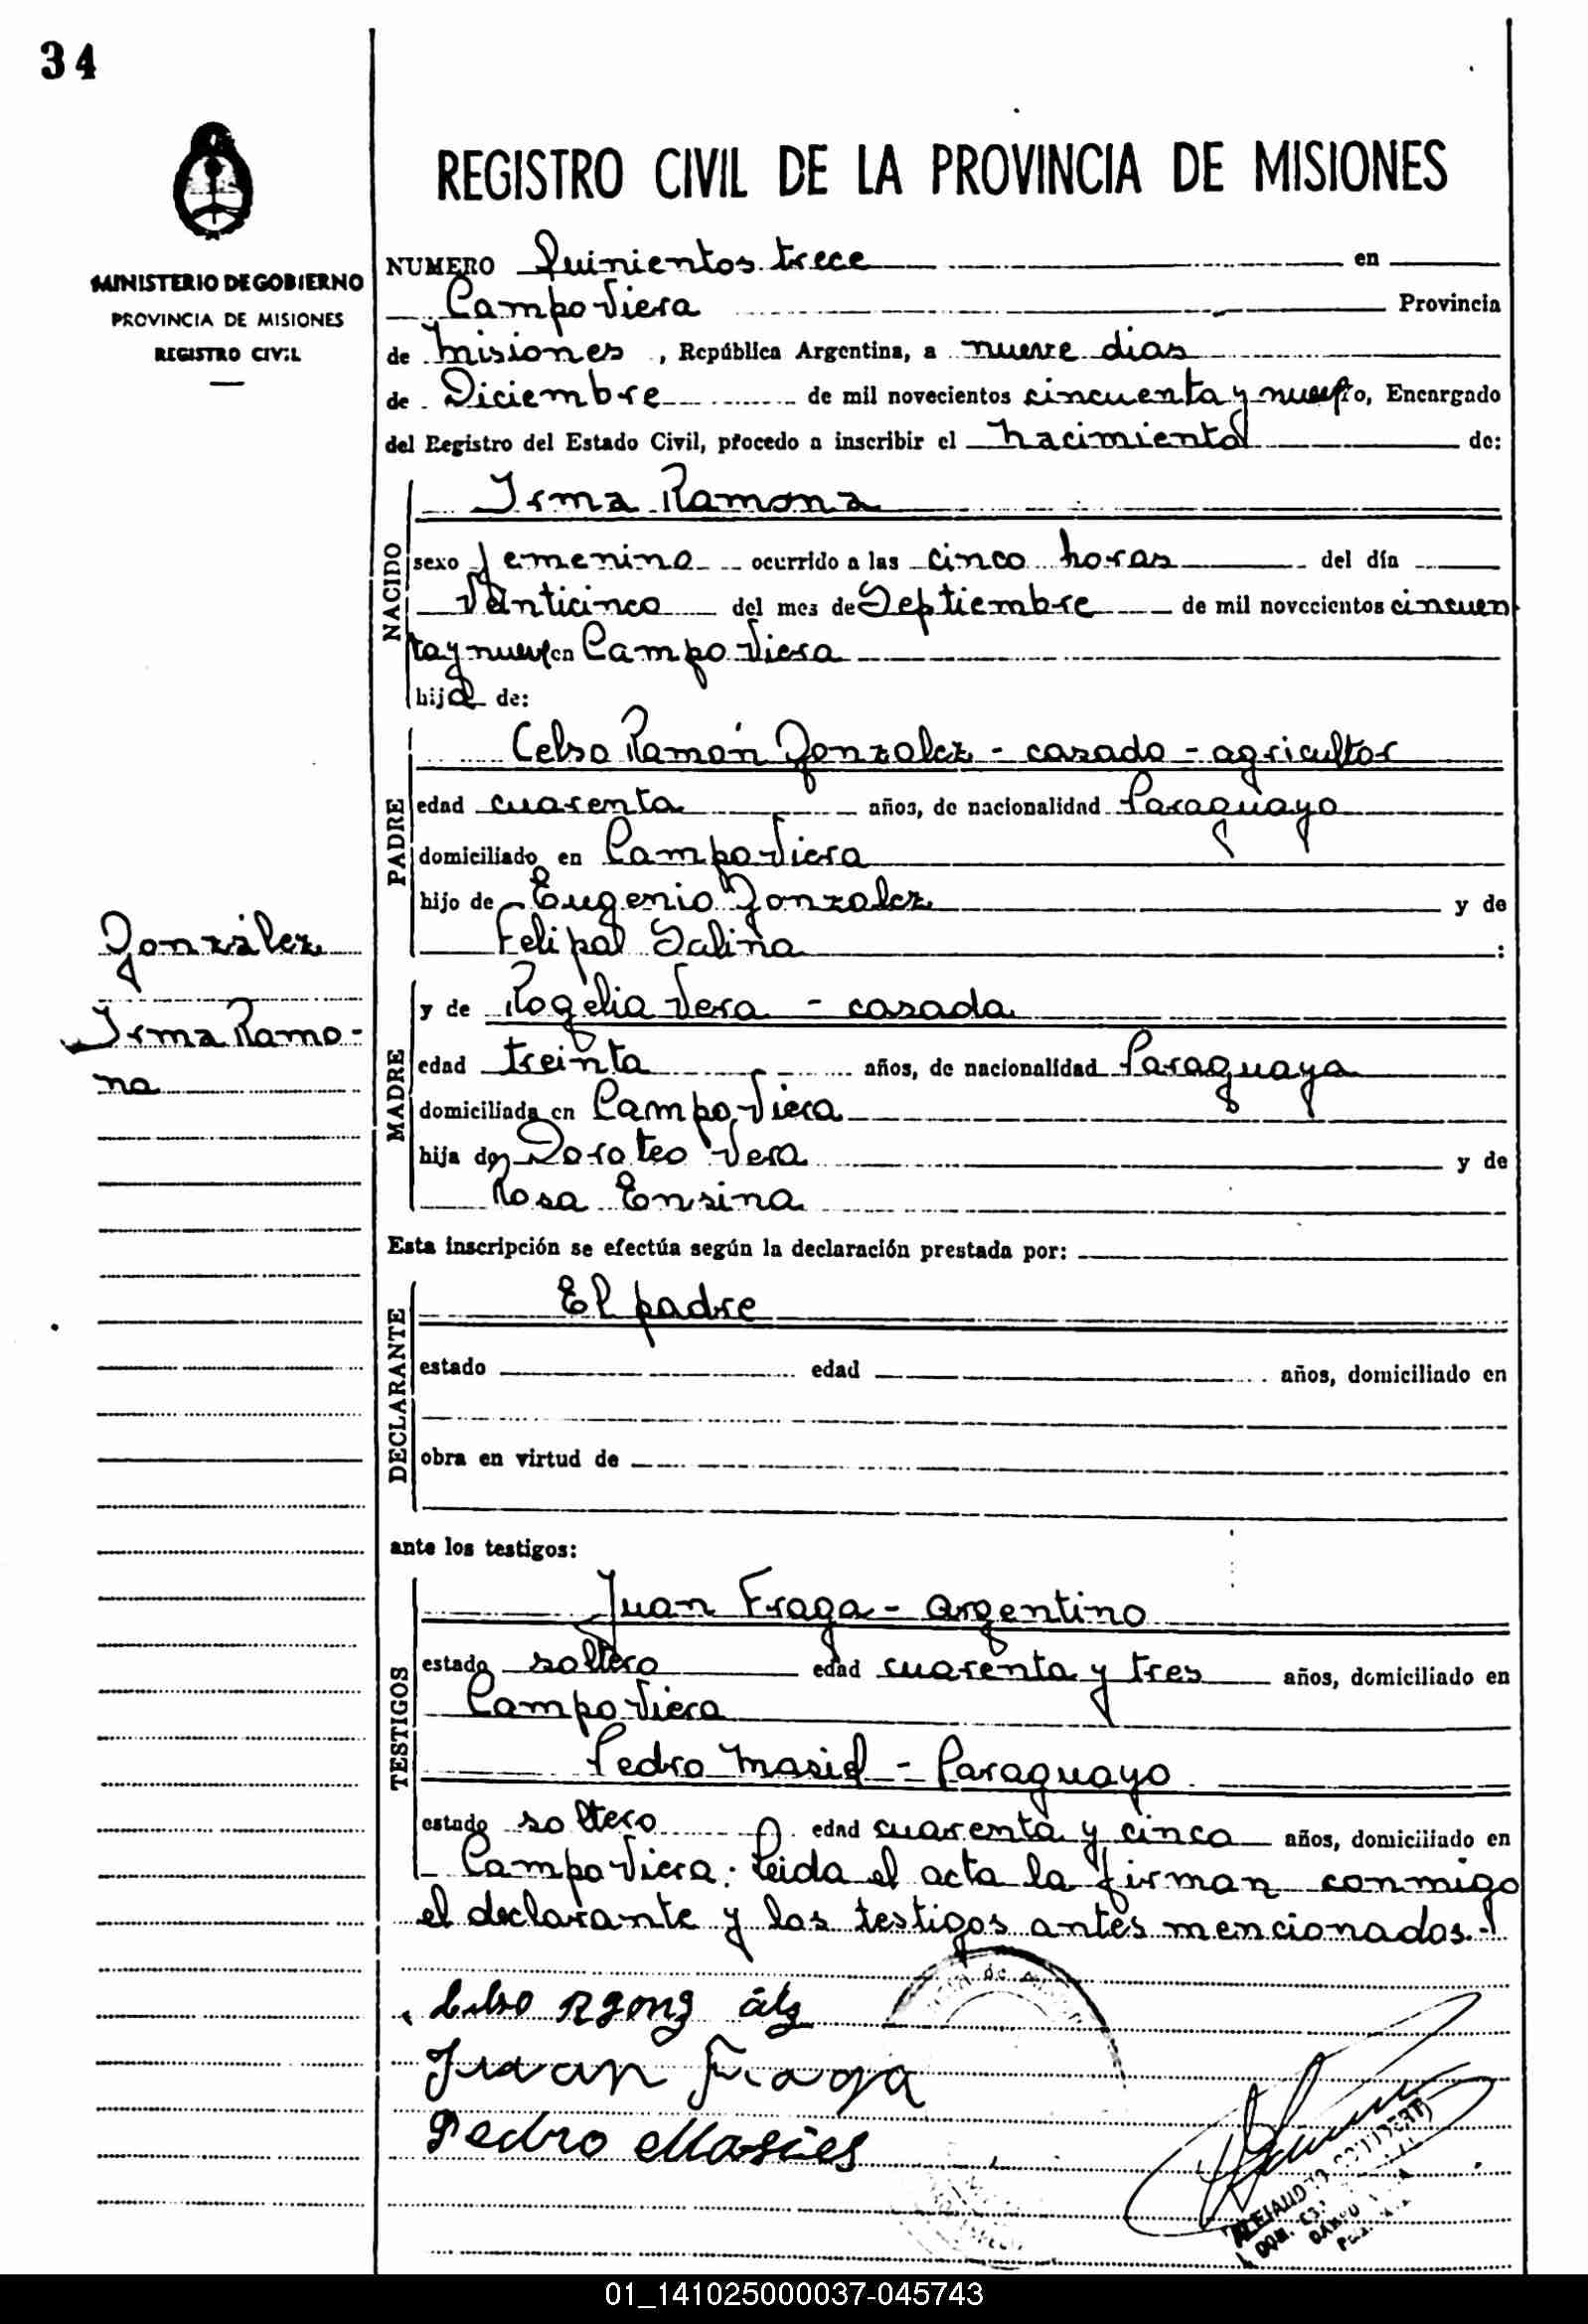 34
MINISTERIO DE GOBIERNO
PROVINCIA DE MISIONES
REGISTRO CIVIL
REGISTRO CIVIL DE LA PROVINCIA DE MISIONES
NUMERO Quinientos trece en
Campo Viera Provincia
de Misiones, República Argentina, a nueve dias
de Diciembre de mil novecientos cincuenta y nueve yo, Encargado
del Registro del Estado Civil, procedo a inscribir el nacimiento de:
NACIDO
Irma Ramona
sexo femenino ocurrido a las cinco horas del día
Veinticinco del mes de Septiembre de mil novecientos cincuen
ta y nueve en Campo Viera
hija de:
PADRE
Celso Ramón Gonzalez - casado - agricultor
edad cuarenta años, de nacionalidad Paraguayo
domiciliado en Campo Viera
hijo de Eugenio Gonzalez y de
Felipa Salina :
González
Irma Ramo-
na
MADRE
y de Rogelia Vera - casada
edad treinta años, de nacionalidad Paraguaya
domiciliada en Campo Viera
hija de Doroteo Vera y de
Rosa Ensina
Esta inscripción se efectúa según la declaración prestada por:
DECLARANTE
El padre
estado edad años, domiciliado en
obra en virtud de
ante los testigos:
TESTIGOS
Juan Fraga - argentino
estado soltero edad cuarenta y tres años, domiciliado en
Campo Viera
Pedro Masiel - Paraguayo
estado soltero edad cuarenta y cinco años, domiciliado en
Campo Viera. Leida el acta la firman conmigo
el declarante y los testigos antes mencionados.-
Celso R gonz álz
Juan Fraga
Pedro Masies
01_141025000037-045743